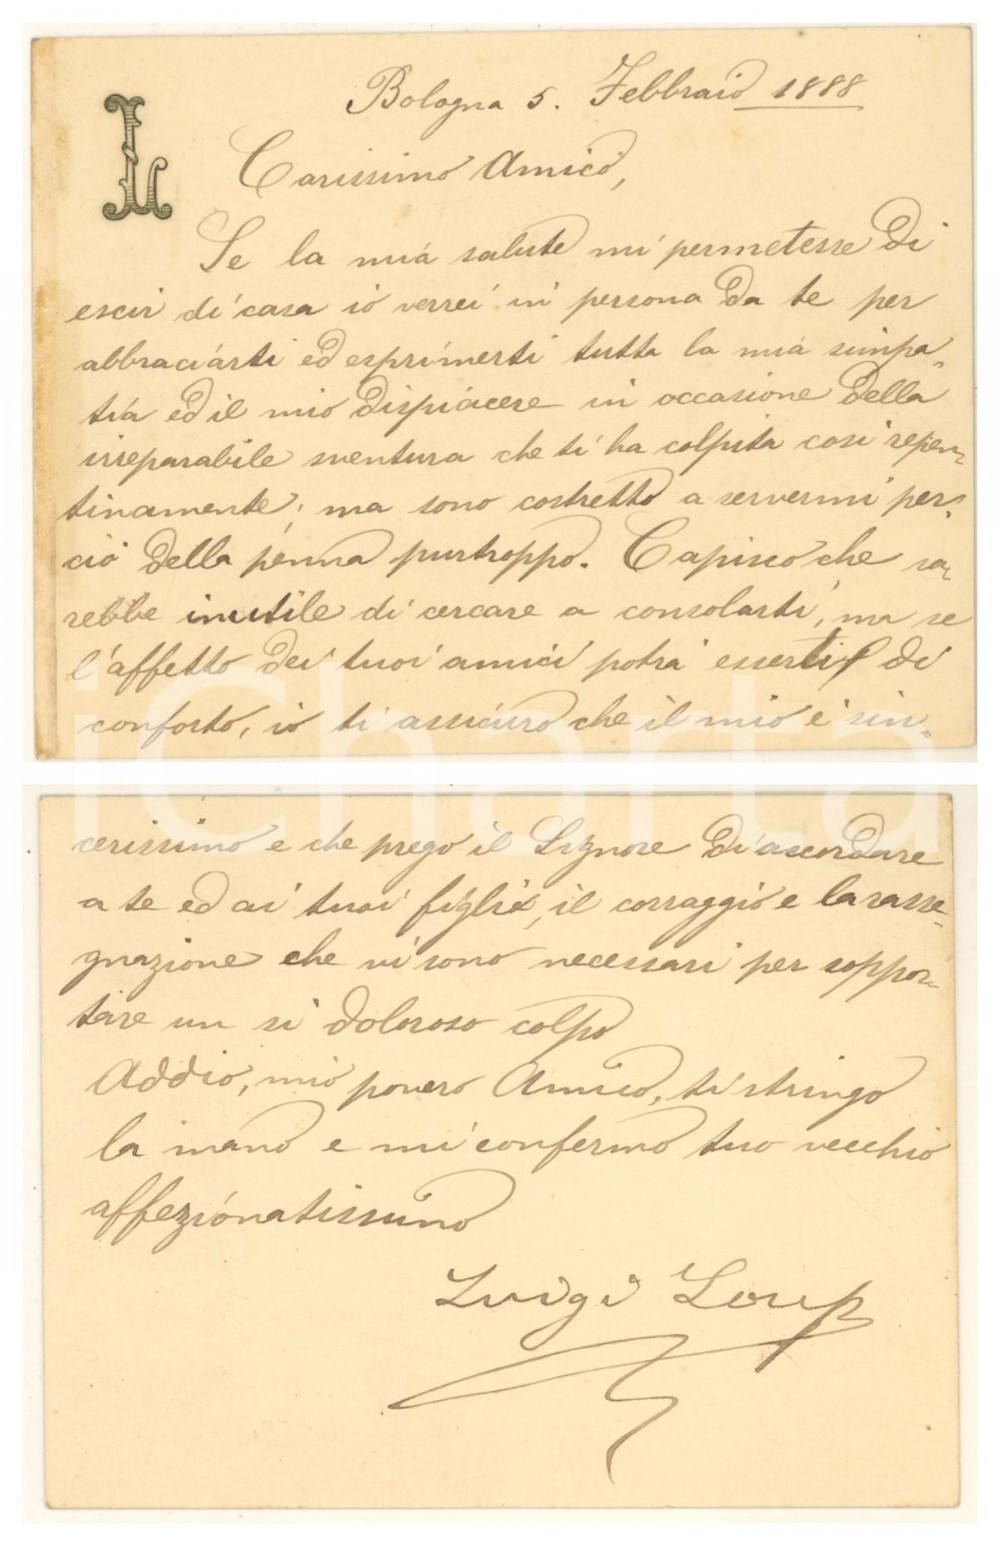 Bologna 5. Febbraio 1888
L
Carissimo Amico,
Se la mia salute mi permetesse di
escir di casa io verrei in persona da te per
abbracciarti ed esprimerti tutta la mia simpa-
tia ed il mio dispiacere in occasione della
irreparabile sventura che ti ha colpita così repen-
tinamente; ma sono costretto a servermi per-
ciò della penna purtroppo. Capisco che sa-
rebbe inutile di cercare a consolarti, ma se
l'affetto dei tuoi amici potrà esserti di
conforto, io ti assicuro che il mio è sin-
cerissimo e che prego il Signore di accordare
a te ed ai tuoi figli, il corraggio e la rasse-
gnazione che vi sono necessari per soppor-
tare un sì doloroso colpo
Addio, mio povero Amico, ti stringo
la mano e mi confermo tuo vecchio
affezionatissimo
Luigi Loup
iCharta